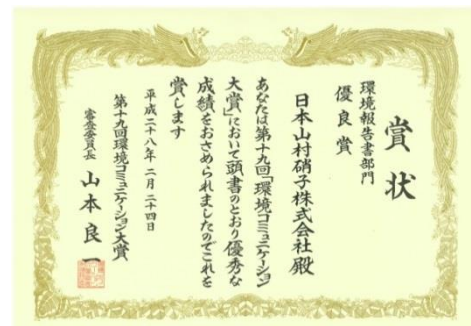 賞状
環境報告書部門
優良賞
日本山村硝子株式会社殿
あなたは第十九回「環境コミュニケーション
大賞」において頭書のとおり優秀な
成績をおさめられましたのでこれを
賞します
平成二十八年二月二十四日
第十九回環境コミュニケーション大賞
審査委員長 山本良一